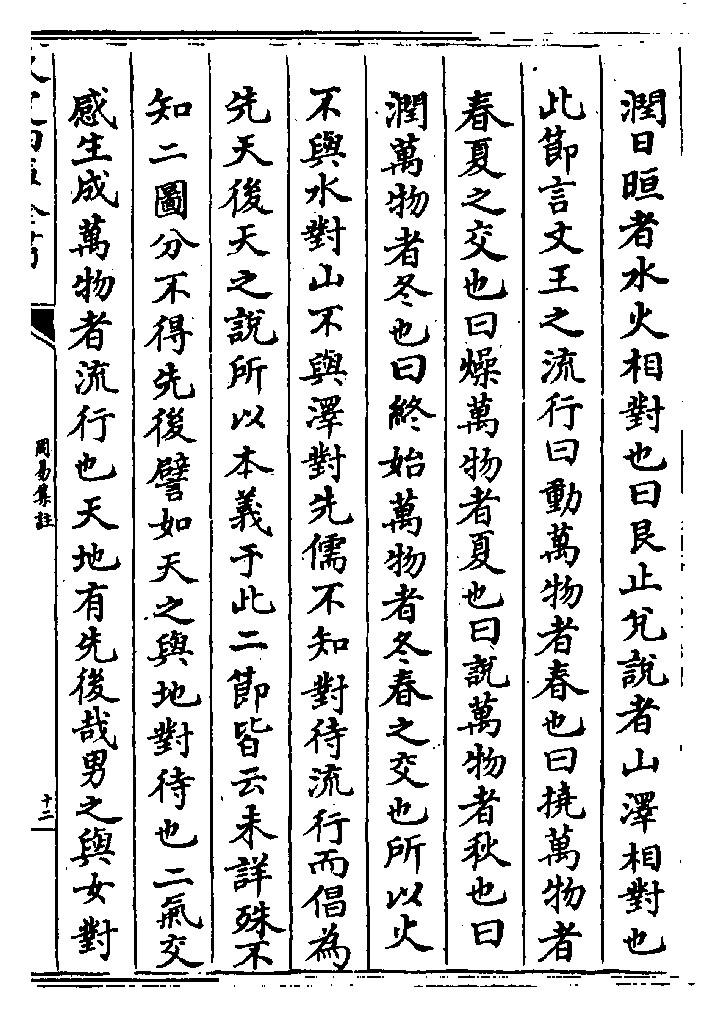 潤日晅者水火相對也曰艮止兊說者山澤相對也
此節言文王之流行曰動萬物者春也曰撓萬物者
春夏之交也曰燥萬物者夏也曰説萬物者秋也曰
潤萬物者冬也曰終始萬物者冬春之交也所以火
不與水對山不與澤對先儒不知對待流行而倡為
先天後天之說所以本義于此二節皆云未詳殊不
知二圖分不得先後譬如天之與地對待也二氣交
感生成萬物者流行也天地有先後哉男之與女對
周易集註
十二